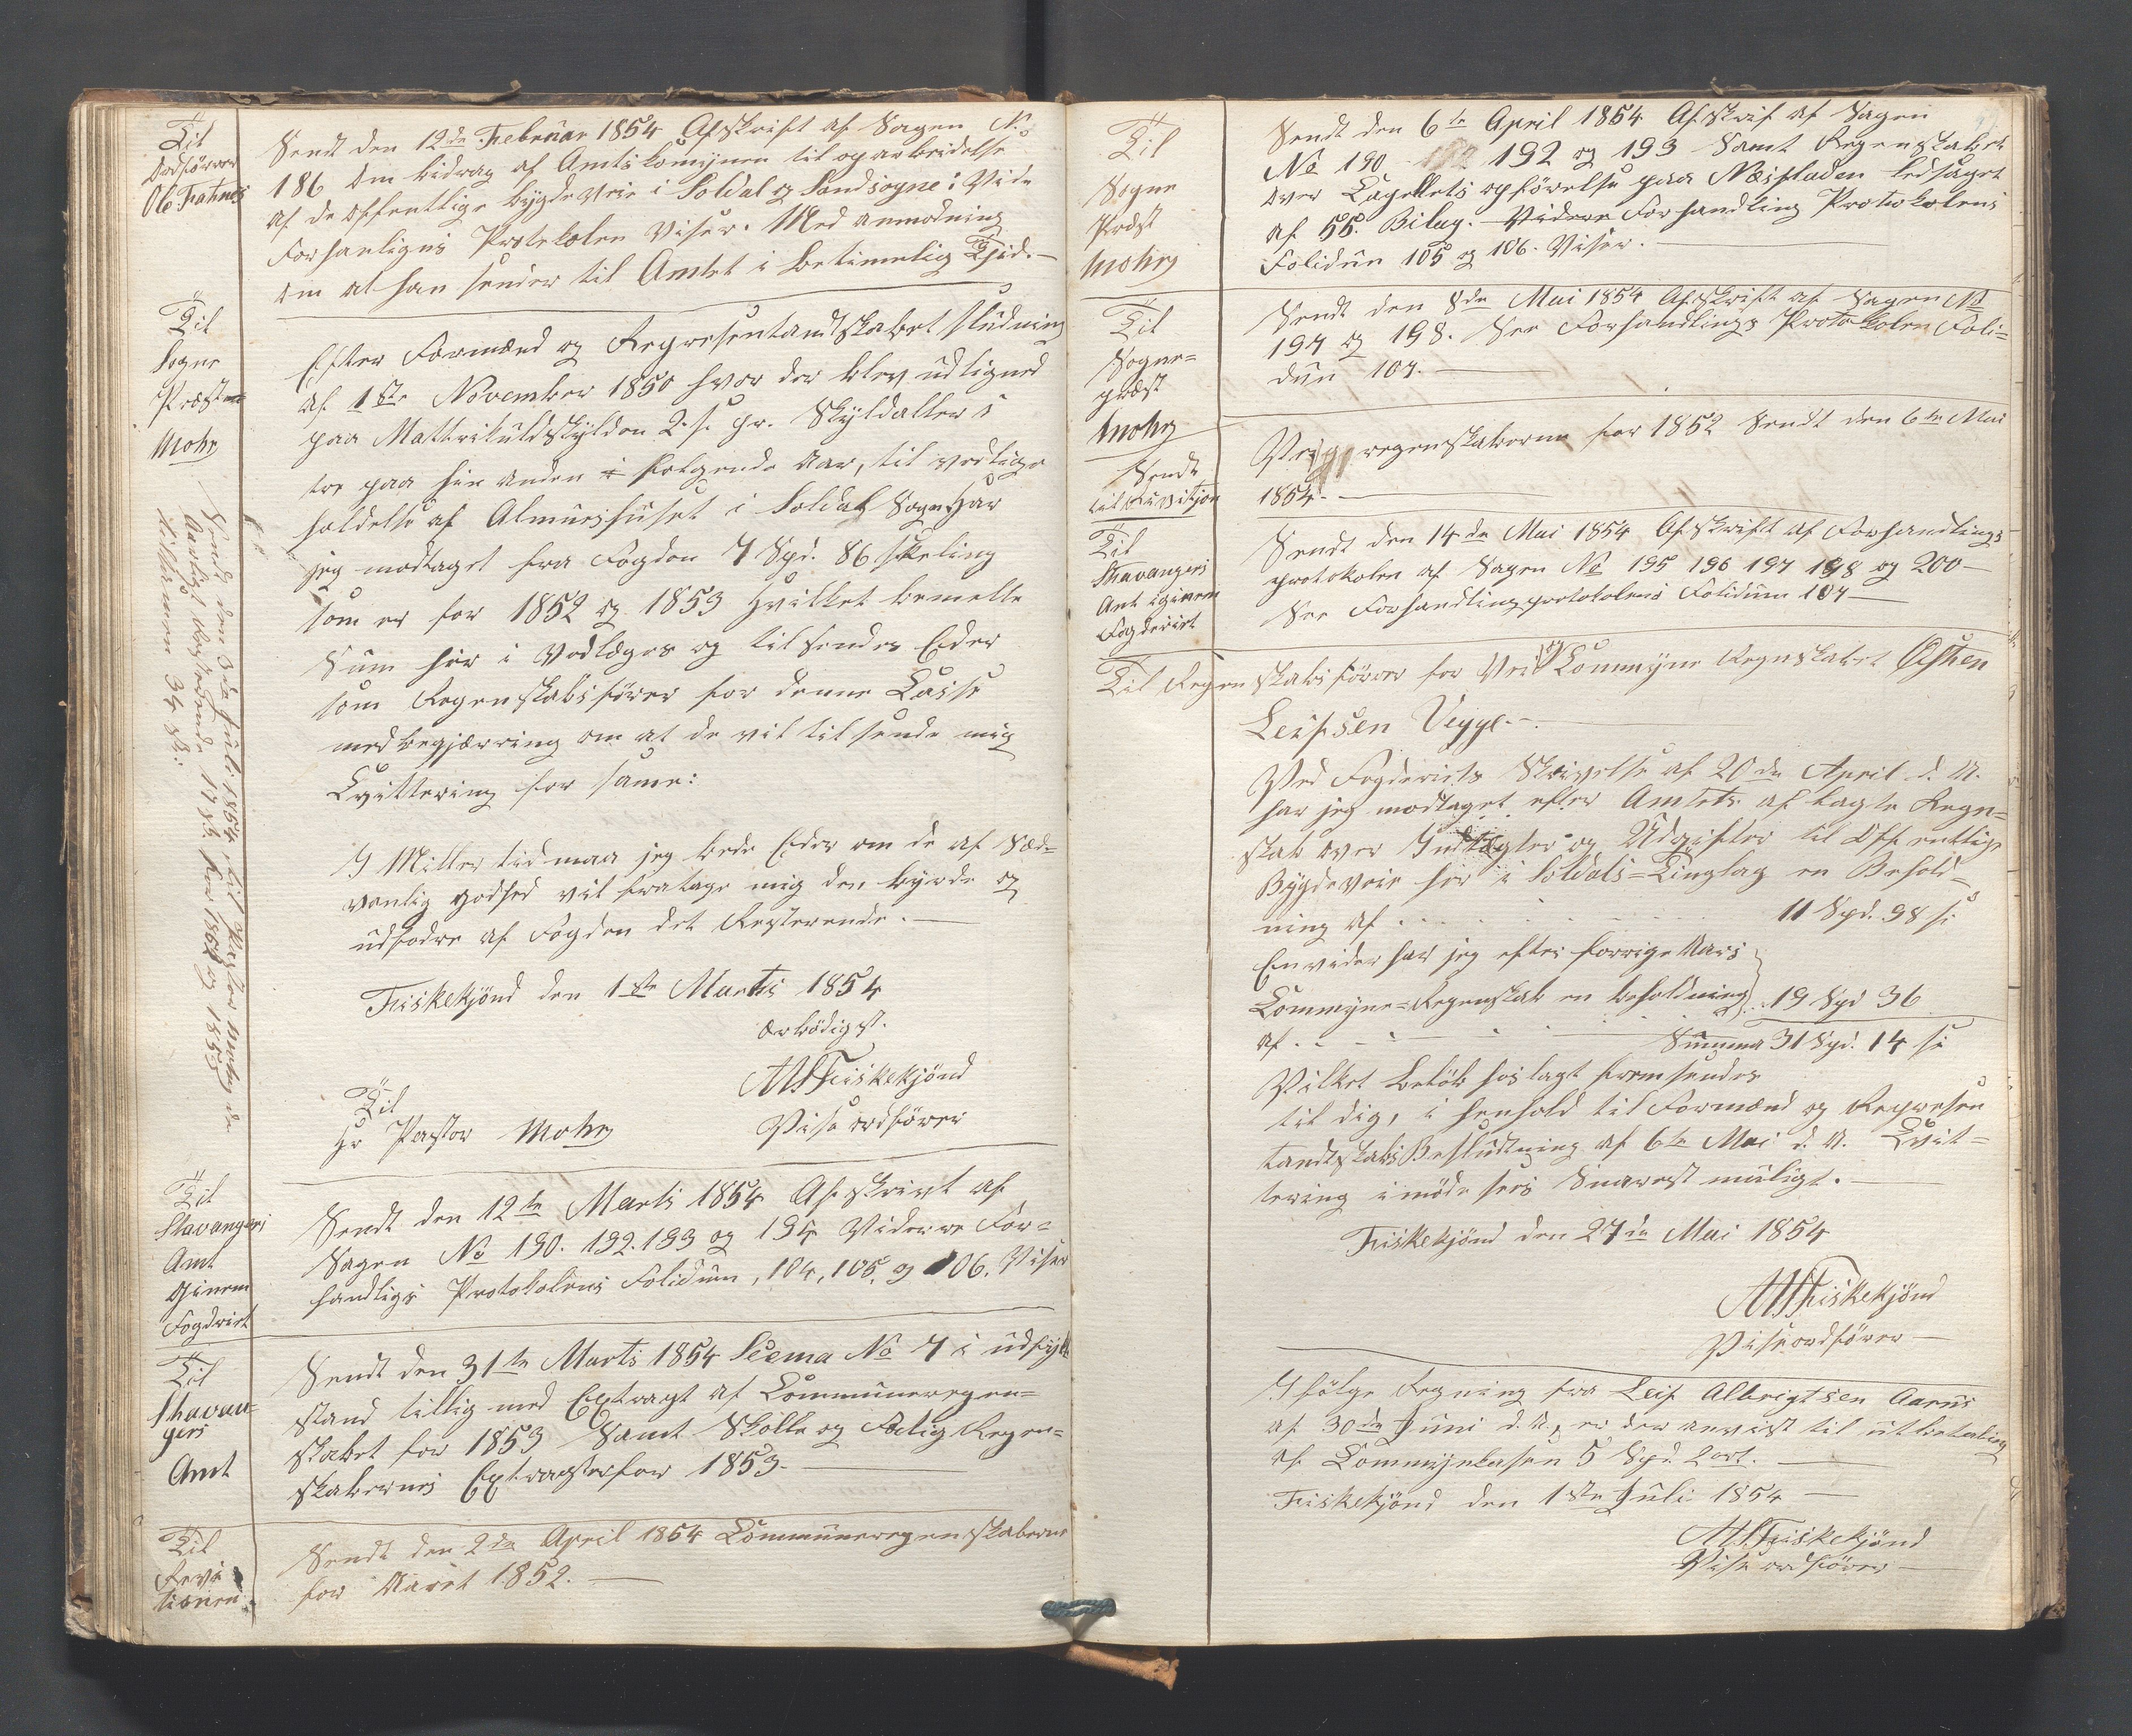 Til
Ordfören
Ole Fatnes
Sendt den 12de Februar 1854 Afskrift af Sagen No
186 Om bidrag af Amtskomynen til oparbeidelse
af de offentlige bygdeveie i Soldal og Sandsogne: Vide
Forhanligns Protokolen Viser. Med anmodning
om at han sender til Amtet i betimelig Tjid.—
Til
Sogne
Præsten
Mohr
Efter Formænd og Representandtskabet sludning
af 1ste November 1850 hvor der blev udligned
paa Mattrikuldskylden 2 s. pr. Skyldaller i
tre paa hin anden i følgende Aar, til vedlige
holdelse af Almueshuset i Soldal Sogn Har
jeg modtaget fra Fogden 7 Spd. 86 skeling
som er for 1852 og 1853 Hvilket bemelte
Sum her i Vedlæges og tilsendes Eder
som Regenskabsförer for denne Casse
med begjærring om at de vil tilsende mig
Qvittering for same:
I Midlertid maa jeg bede Eder om de af Sæd-
vanlig godhed vil fratage mig den byrde og
udfodre af Fogden det Resterende.—
Fiskekjönd den 1ste Martis 1854
Ærbödigst.
AMFiskekjönd
Viseordförer
Til
Hr Pastor Mohr
Sendt den 3de Juli 1854 til Pastor Mohr de
Aarligs Resterende 17 sk. for 1852 og 1853
tilsammen 34 sk.
Til
Stavangers
Amt
ginem
Fogdriet
Sendt den 12te Marts 1854 Afskrivt af
Sagen No 190. 192. 193 og 194 Viderre For-
handligs Protokolens Folidum, 104, 105, og 106. Viser
Til
Shavan-
gers
Amt
Sendt den 31te Marts 1854 Scema No 7 i udfylt
stand tillig med Extragt af Communeregen-
skabet for 1853 Samt Skolle og Fatig Regen-
skabernes Extragter for 1853.—
Til
Revi
tionen
Sendt den 2de April 1854 Communeregenskaberne
for Aaret 1852.—
Til
Sogne
Præst
Mohr
Sendt den 6te April 1854 Afskrif af Sagen
No 190 192 og 193 Samt Regenskabet
over Capellets opförelse paa Næsfladen ledsaget
af 55. Bilag.— Videre Forhandling Protokolens
Folidum 105 og 106. Viser.—
Til
Sogne-
præst
Mohr
Sendt den 8de Mai 1854 Afskrift af Sagen No
197 og 198. See Forhandlings Protokolen Foli-
dun 107.—
Sendt
til Revitjon
Vei regenskaberne for 1852 Sendt den 6te Mai
1854.—
Til
Shavangers
Amt igjinem
Fogderiet
Sendt den 14de Mai 1854 Afskrift af Forhandlings
protokolen af Sagen No 195 196 197 198 og 200—
See Forhandlingprotokolens Folidum 107—
Til Regenskabsförer for Vei og Commyne Regnskabet Östen
Leifsen Vegge.—
Ved Fogderiets Skrivelse af 20de April d. A.
har jeg modtaget efter Amtets aflagte Regn-
skab over Indtægter og Udgifter til Offentlige
Bygdeveie her i Soldals-Tinglag en Behold-
ning af . . . . . . 11 Spd. 98 s.
Envider har jeg efter forrige Aars
Commyne-Regenskab en beholdning
af . . . . . . 19 Spd 36
Summa 31 Spd. 14 s.
Vilket belöb hoslagt fremsendes
til dig, i henhold til Formænd og Represen
tandtskabs Besludtning af 6te Mai d. A. Qvit-
tering imöde sees Snarest muligt.—
Fiskekjönd den 27de Mai 1854
AMFiskekjönd
Viseordförer—
Ifölge Regning fra Leif Albrigtsen Aarus
af 30de Juni d. A. er der anvist til utbetaling
af Commynkasen 5 Spd. 2 ort.—
Fiskekjönd den 1ste Juli 1854—
AMFiskekjönd
Viseordförer—